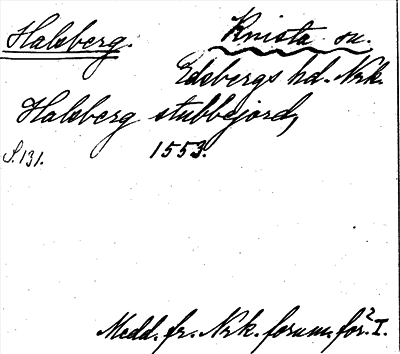 Halsberg. Knista sn.
Edsbergs hd. Nrk.
Halsberg stubbejord,
S. 131. 1553.
Medd. fr. Nrk. fornm. för² I.